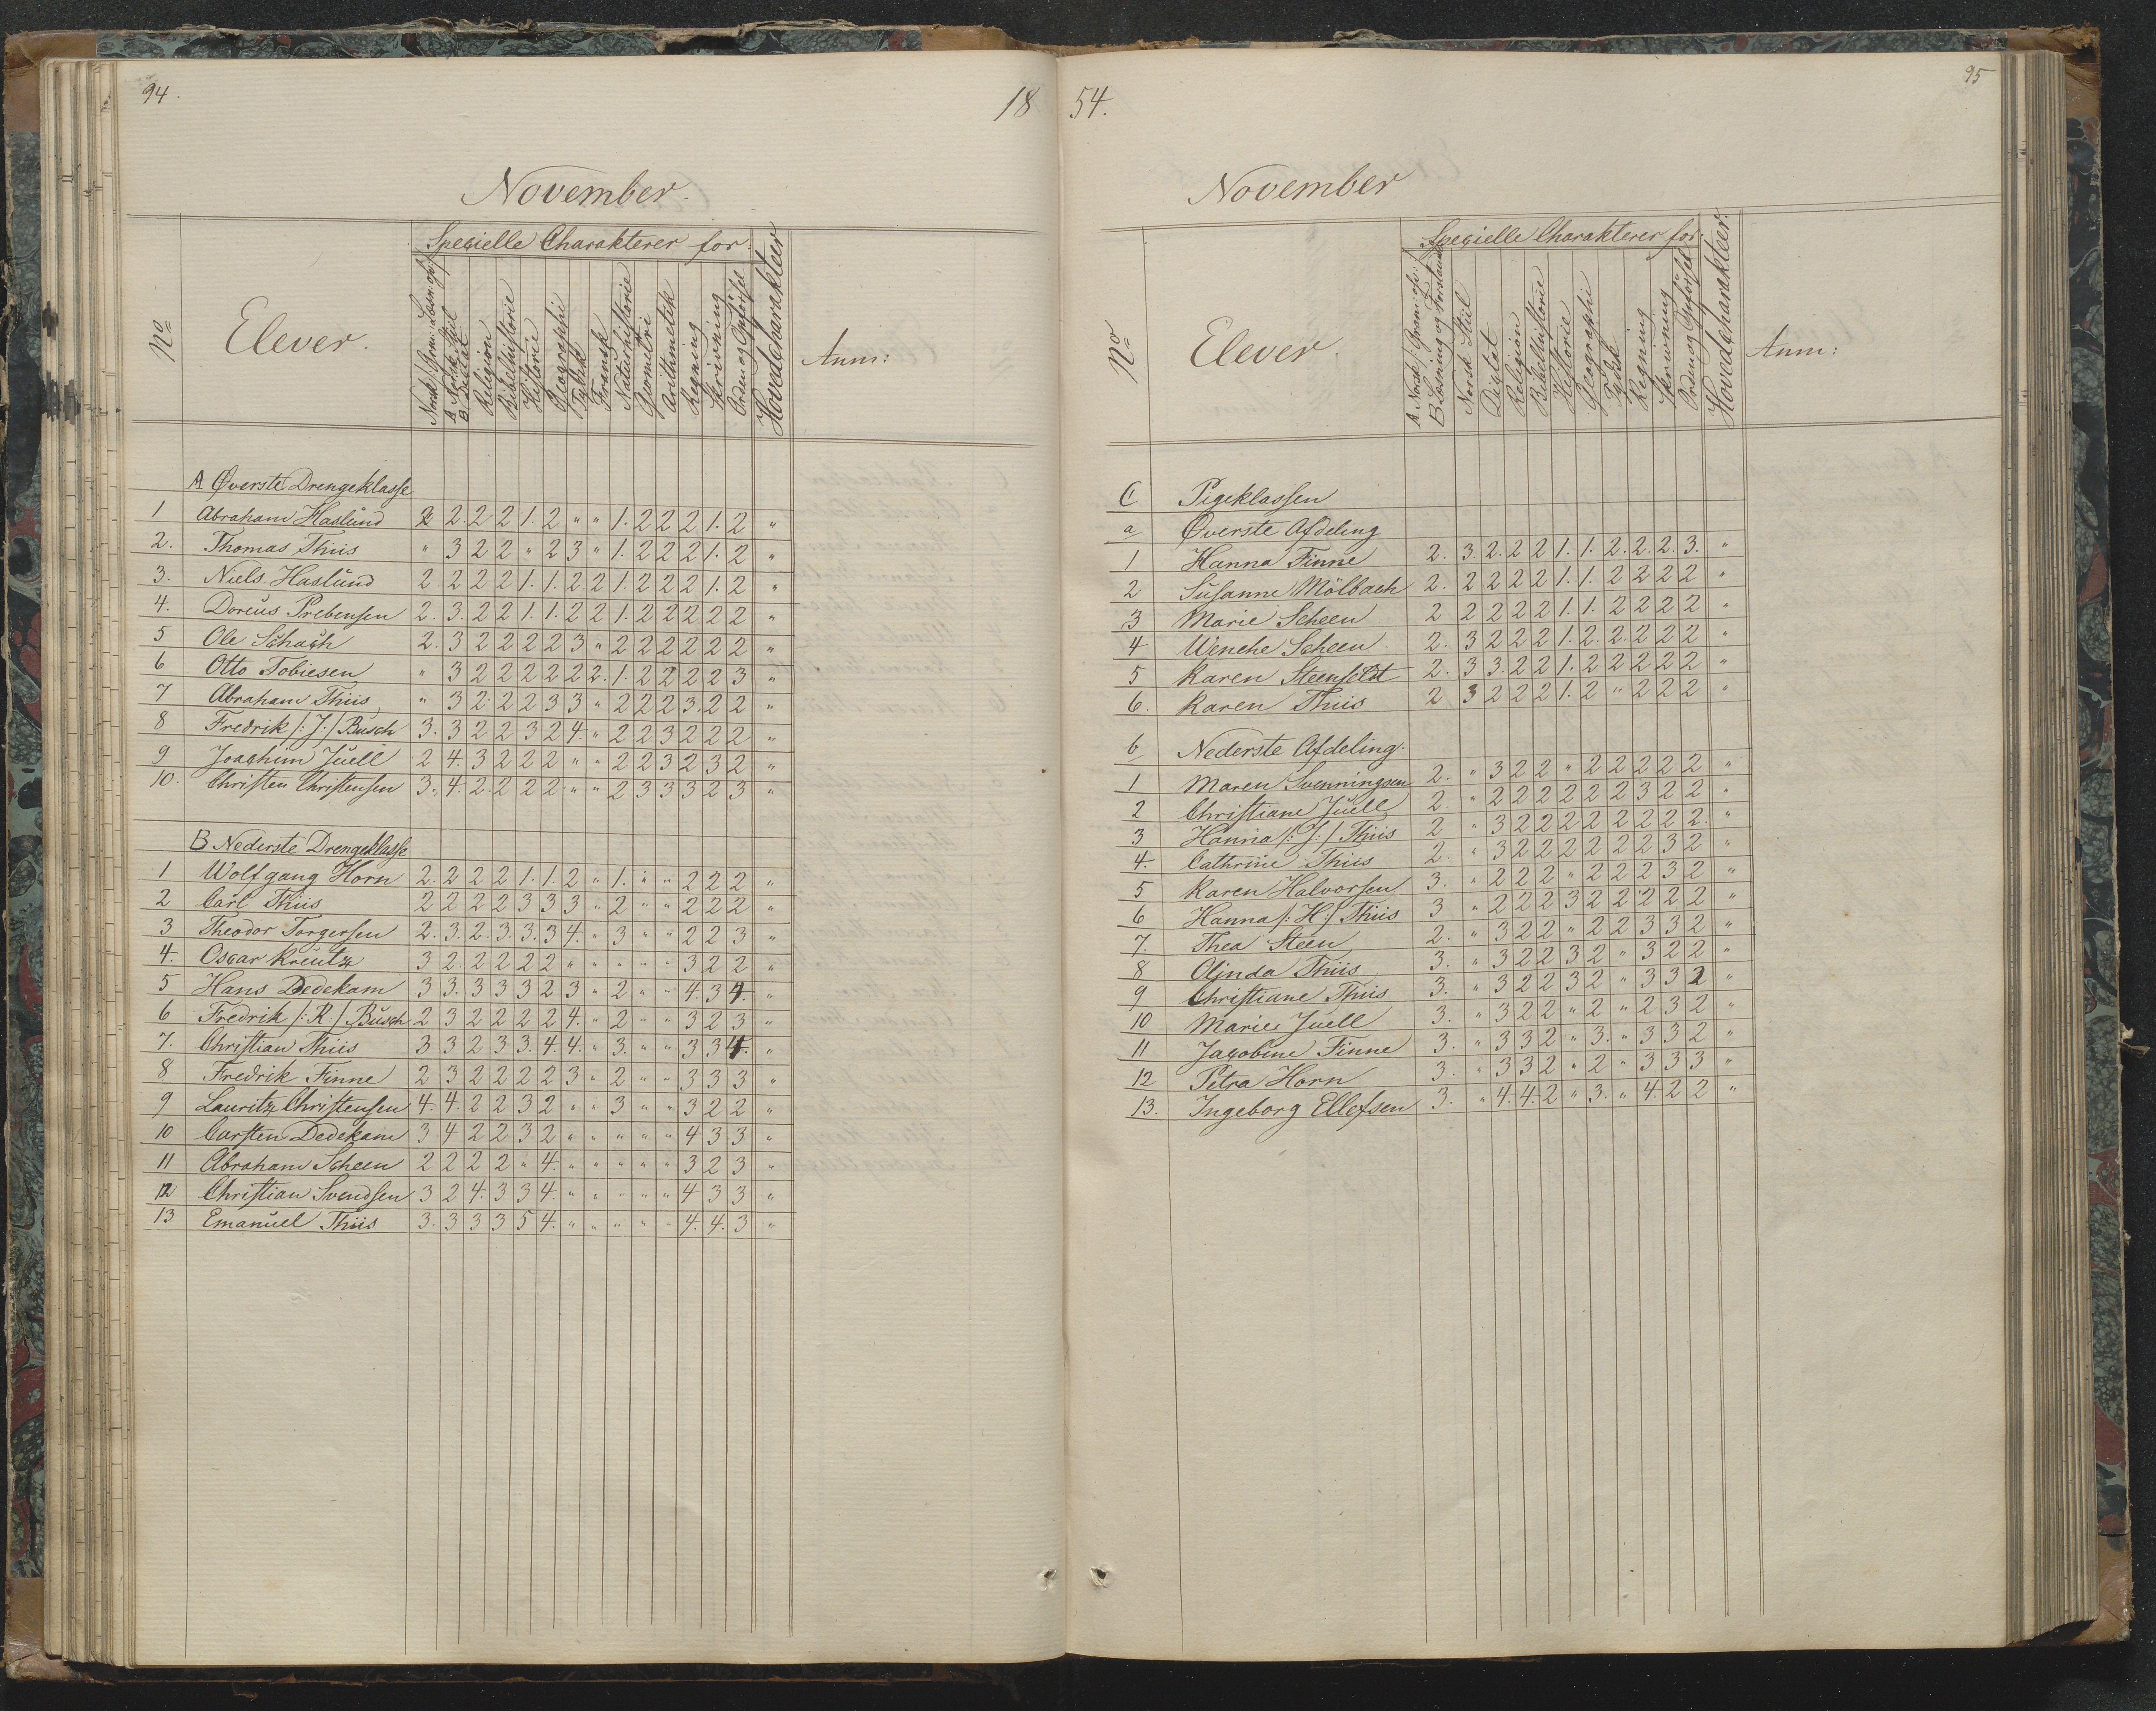 94.
18
November.
Specielle Charakterer for:
No
Elever.
A Norsk Stiil
B Dictat
Religion
Bibelhistorie
Historie
Geographi
Tydsk
Fransk
Naturhistorie
Geometri
Arithmetik
Regning
Skrivning
Orden og Opførsel
Hovedcharakteer
Anm:
A Øverste Drengeklasse
1 Abraham Haslund 2 2. 2 2 1. 2 " " 1. 2 2 2 1. 2 "
2. Thomas Thiis " 3 2 2 " 2 3 " 1. 2 2 2 1. 2 "
3. Niels Haslund 2 2 2 2 1. 1. 2. 2 1. 2 2 2 1. 2 "
4. Doreus Prebensen 2. 3. 2 2 1. 1. 2 2 1. 2 2 2 2 2 "
5 Ole Schach 2. 3 2 2 2 2 3 " 2 2 2 2 2 2 "
6 Otto Tobiesen " 3 2 2 2 2 2 2. 1. 2 2 2 2 3 "
7 Abraham Thiis " 3 2 2 2 3 3 " 2 2 2 3. 2 2 "
8 Fredrik /: J :/ Busch 3. 3 2 2 3 2 4. " 2 2 3 2 2 2 "
9 Joachim Juell 2 4. 3 2 2 2 " " 2 2 3 2 3 2 "
10. Christen Christensen 3. 4. 2 2 2 2 " " 2 3 3 3 2 3 "
B Nederste Drengeklasse
1 Wolfgang Horn 2. 2 2 2 1. 1. 2 " 1. " " 2 2 2 "
2 Carl Thiis 2 2 2 2 3 3 3 " 2 " " 2 2 2 "
3 Theodor Torgersen 2. 3. 2. 3. 3. 3 4. " 3 " " 2 2 3 "
4. Oscar Kreutz 3 2. 2 2 2 2 " " " " " 3 2 2 "
5 Hans Dedekam 3 3. 3 3 3 2 3 " 2 " " 4. 3 4. "
6 Fredrik /: R :/ Busch 2 3 2 2 2 2 4. " 2 " " 3 2 3 "
7. Christian Thiis 3 3 2 3 3. 4. 4. " 3. " " 3 3 4. "
8 Fredrik Finne 2 3 2 2 2 2 3 " 2 " " 3 3 3 "
9 Lauritz Christensen 4. 4. 2 2 3 2 " " 3 " " 3 2 2 "
10 Carsten Dedekam 3 4 2 2 3 2 " " " " " 4 3 3 "
11 Abraham Scheen 2 2 2 2 " 4. " " " " " 3 2 3 "
12 Christian Svendsen 3 2 4. 3 3 4. " " " " " 4 3 3 "
13 Emanuel Thiis 3. 3 3 3 5 4. " " " " " 4. 4. 3 "
95
54.
November
Specielle Charakterer for:
No
Elever.
B Læsning og Forstand
Norsk Stiil
Dictat
Religion
Bibelhistorie
Historie
Geographi
Tydsk
Regning
Skrivning
Orden og Opførsel
Hovedcharakteer.
Anm:
C Pigeklassen
a Øverste Afdeling
1 Hanna Finne 2. 3 2. 2 2 1. 1. 2. 2. 2. 3. "
2 Susanne Mölbach 2. 2 2 2 2 1. 1. 2 2 2 2 "
3 Marie Scheen 2 2 2 2 2 1. 1. 2 2 2 2 "
4 Wenche Scheen 2. 3 2 2 2 1. 2. 2. 2 2 2 "
5 Karen Steenfeldt 2. 3 3. 2 2 1. 2 2 2 2 2 "
6. Karen Thiis 2 3 2 2 2 1. 2 " 2 2 2 "
b Nederste Afdeling.
1 Maren Svenningsen 2. " 3 2 2 " 2 2 2 2 2 "
2 Christiane Juell 2. " 2 2 2 2 2 2 3 2 2 "
3 Hanna /: J :/ Thiis 2 " 3 2 2 2 2 2 2 2 2. "
4. Cathrine Thiis 2. " 3 2 2 2 2 2 2 3 2 "
5 Karen Halvorsen 3. " 2 2 2 " 2 2 2 3 2 "
6 Hanna /: H :/ Thiis 3 " 2 2 2 3 2 2 2 2 2 "
7. Thea Steen 2. " 3 2 2 " 2 2 3 3 2 "
8 Olinda Thiis 3. " 3 2 2 3 2 " 3 2 2 "
9 Christiane Thiis 3. " 3 2 2 3 2 " 3 3 2 "
10 Marie Juell 3. " 3 2 2 " 2 " 2 3 2 "
11 Jacobine Finne 3. " 3 3 2 " 3. " 3 3 2 "
12 Petra Horn 3. " 3 3 2 " 2 " 3 3 3 "
13. Ingeborg Ellefsen 3. " 4. 4. 2 " 3. " 4. 2 2 "